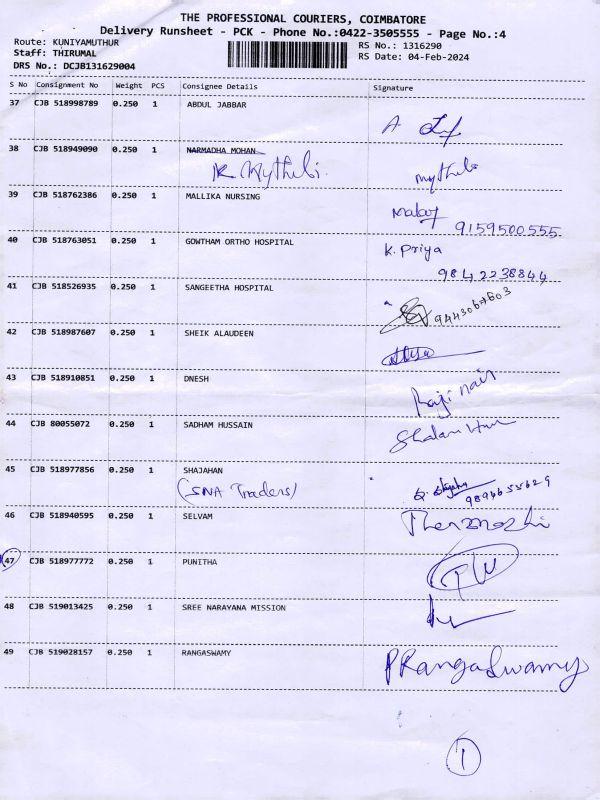 THE PROFESSIONAL COURIERS, COIMBATORE
Delivery Runsheet - PCK - Phone No.:0422-3505555 - Page No.:4
Route: KUNIYAMUTHUR
RS No.: 1316290
Staff: THIRUMAL
RS Date: 04-Feb-2024
DRS No.: DCJB131629004
S No Consignment No Weight PCS Consignee Details Signature
37 CJB 518998789 0.250 1 ABDUL JABBAR
A
38 CJB 518949090 0.250 1 NARMADHA MOHAN
K Mythili.
mythili
39 CJB 518762386 0.250 1 MALLIKA NURSING
9159500555
40 CJB 518763051 0.250 1 GOWTHAM ORTHO HOSPITAL K. Priya
9842238844
41 CJB 518526935 0.250 1 SANGEETHA HOSPITAL
9443067603
42 CJB 518987607 0.250 1 SHEIK ALAUDEEN
43 CJB 518910851 0.250 1 DNESH
Raji nair
44 CJB 80055072 0.250 1 SADHAM HUSSAIN
45 CJB 518977856 0.250 1 SHAJAHAN
(SNA Traders)
9894655629
46 CJB 518940595 0.250 1 SELVAM
47 CJB 518977772 0.250 1 PUNITHA
48 CJB 519013425 0.250 1 SREE NARAYANA MISSION
49 CJB 519028157 0.250 1 RANGASWAMY P RangaSwamy
1